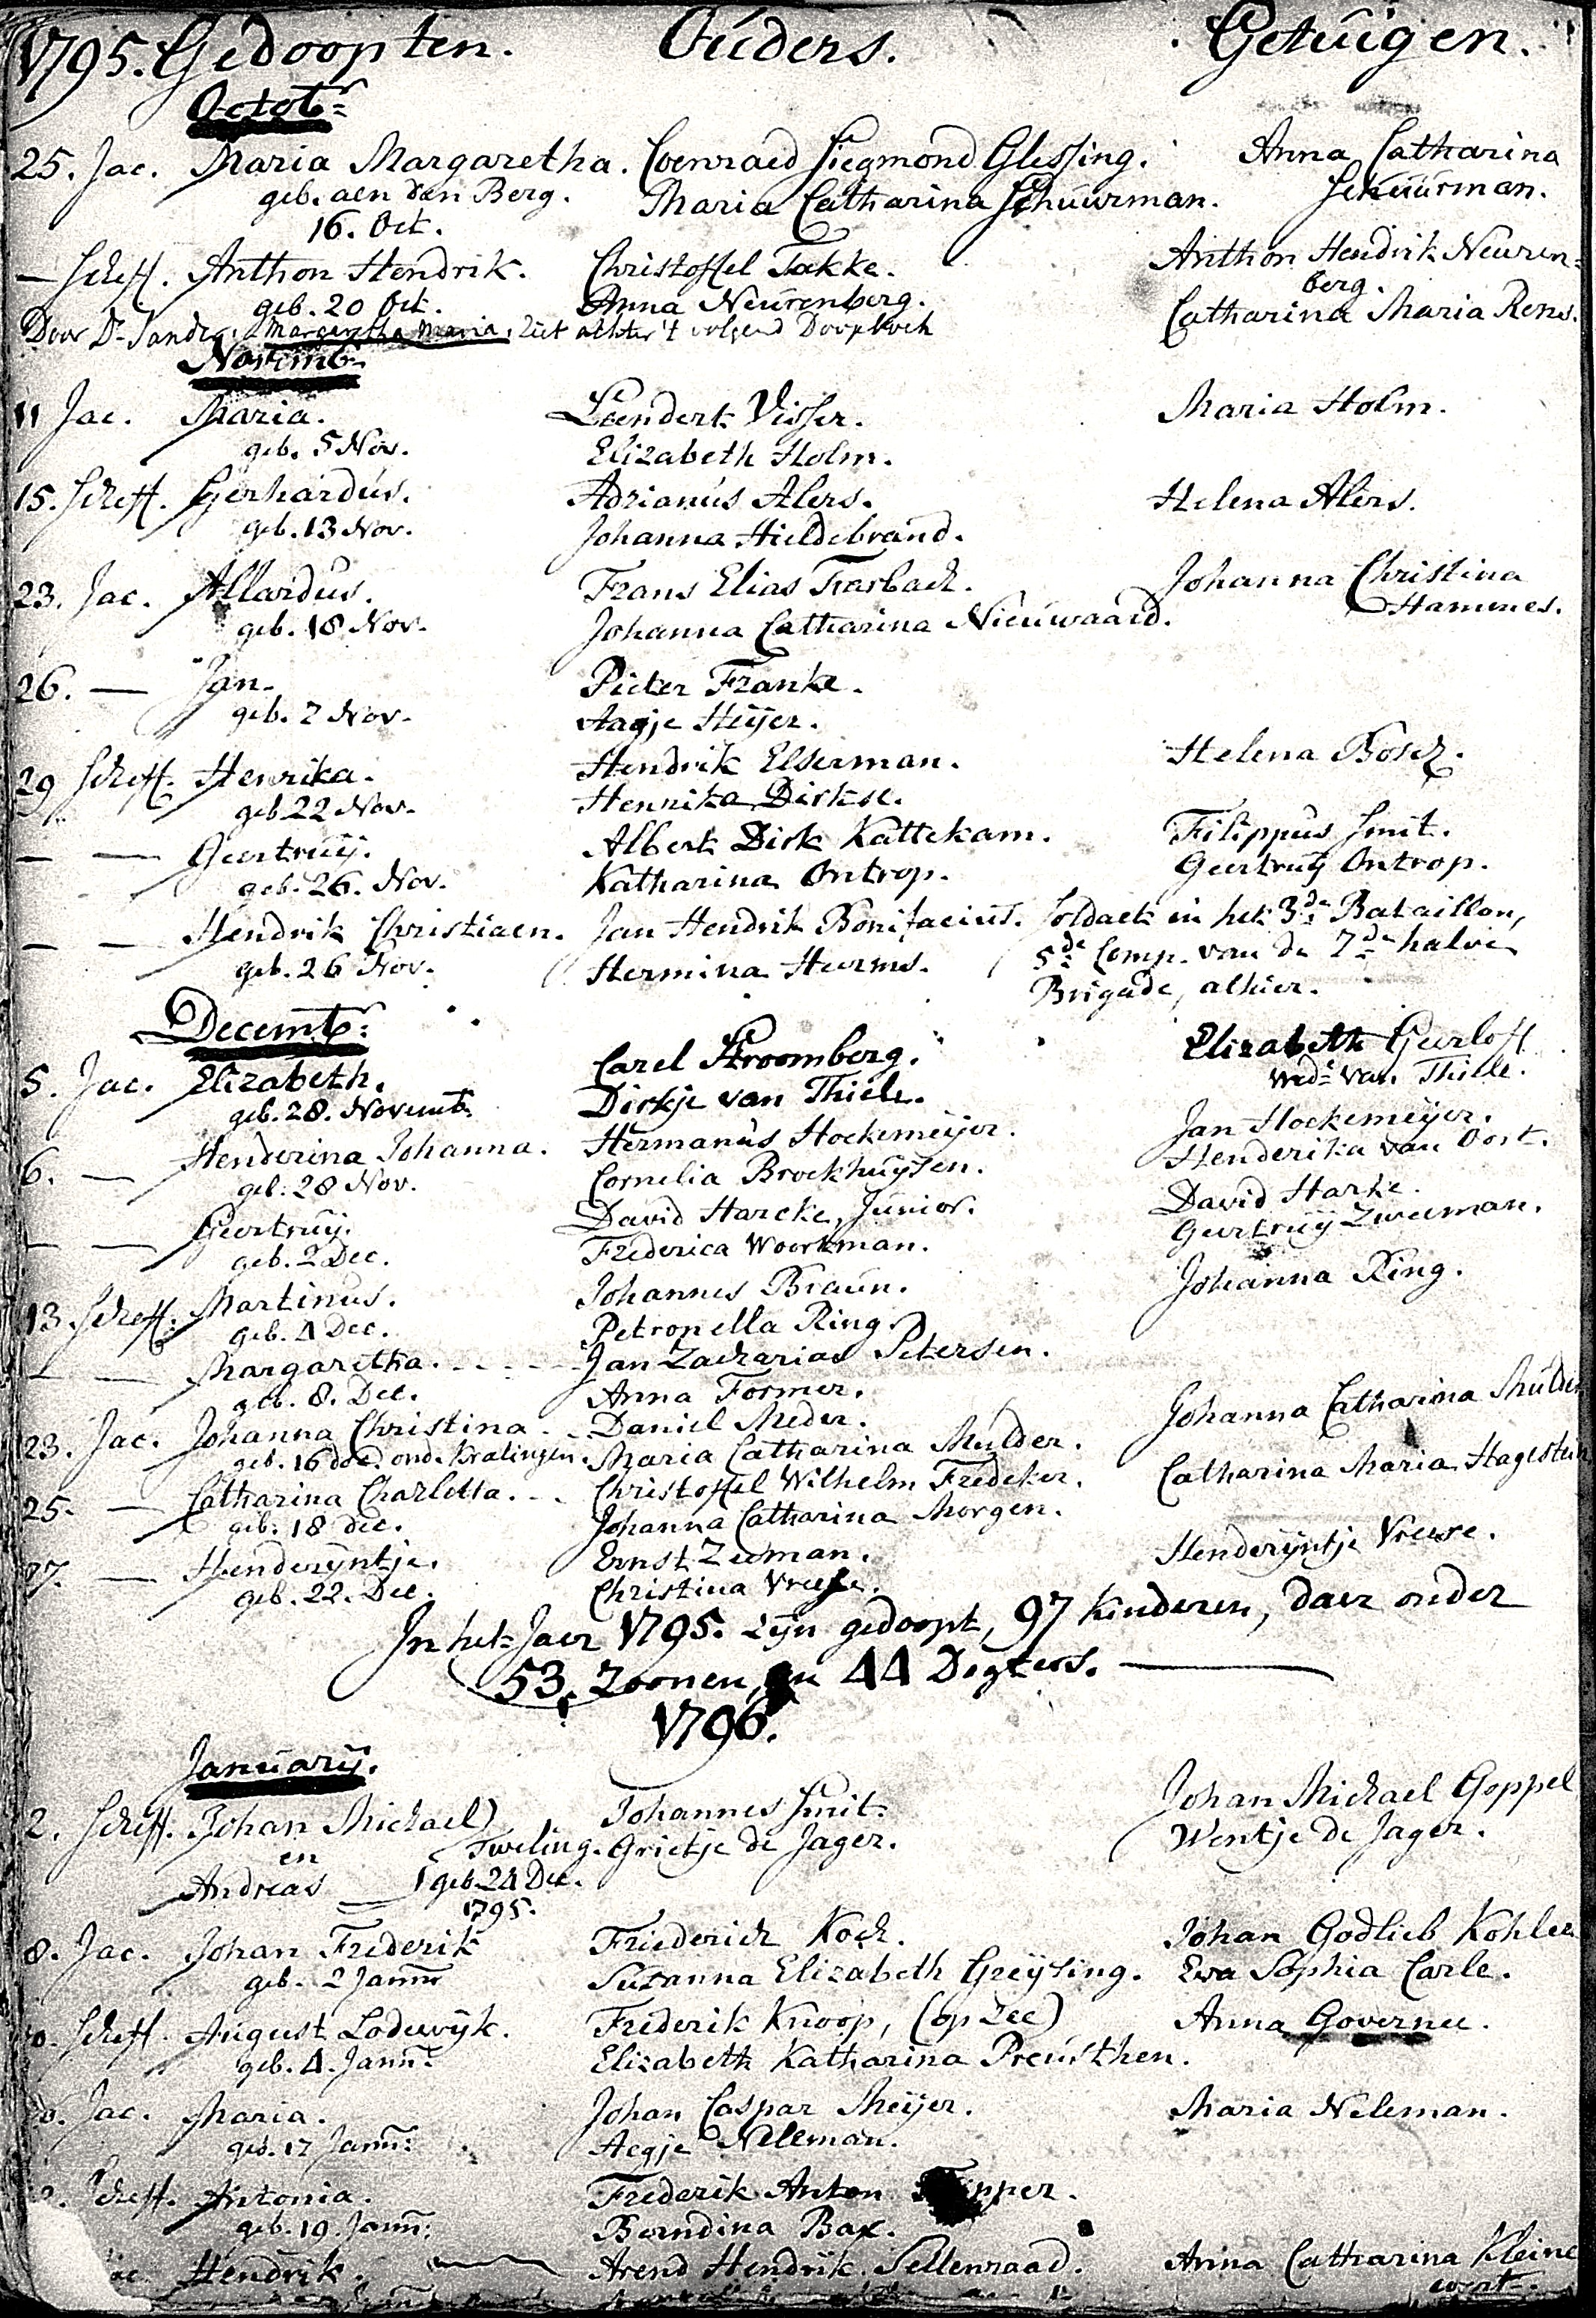 1795. Gedoopten. Ouders. Getuigen.
Octob.r
25. Jac. Maria Margaretha. Coenraed Siegmond Glessing. Anna Catharina
geb. aen den Berg. Maria Catharina Schuurman. Schuurman.
16. Oct.
— Scheff. Anthon Hendrik. Christoffel Takke. Anthon Hendrik Neuren-
berg.
geb. 20 Oct. Anna Neurenberg. Catharina Maria Rens.
Door Ds. Sander Margaretha Maria, ziet achter 't volgend Doopboek
Novemb.
11 Jac. Maria. Leendert Visser. Maria Holm.
geb. 5 Nov. Elizabeth Holm.
15. Scheff. Gerhardus. Adrianus Alers. Helena Alers.
geb. 13 Nov. Johanna Hieldebrand.
23. Jac. Allardus. Frans Elias Trarbach. Johanna Christina
geb. 18 Nov. Johanna Catharina Nieuwaard. Hammes.
26. — Jan. Pieter Franke.
geb. 2 Nov. Aagje Heyer.
29 Scheff. Henrika. Hendrik Elserman. Helena Bosch.
geb. 22 Nov. Henrika Dirkse.
— — Geertruij. Albert Dirk Kattekam. Filippus Smit.
geb. 26. Nov. Katharina Ontrop. Geertruij Ontrop.
— — Hendrik Christiaen. Jan Hendrik Bonifacius. Soldaet in het 3de Bataillon,
geb. 26 Nov. Hermina Hurms. 5de Comp. van de 7de halve
Brigade, alhier.
Decemb.r
5. Jac. Elizabeth. Carel Stroomberg. Elizabeth Gerloff
geb. 28. Novemb. Dirkje van Thiele. wed. van Thiele.
6. — Henderina Johanna. Hermanus Hockemeijer. Jan Hockemeijer.
geb. 28 Nov. Cornelia Brockhuijsen. Henderika van Oort.
— — Geertruij. David Harcke, Junior. David Harke.
geb. 2 Dec. Frederica Woortman. Geertruij Zweeman.
13. Scheff. Martinus. Johannes Braun. Johanna Ring.
geb. 4 Dec. Petronella Ring.
— — Margaretha. Jan Zacharias Petersen.
geb. 8. Dec. Anna Former.
23. Jac. Johanna Christina Daniel Meder. Johanna Catharina Mulder
geb. 16 dec. ond. Kralingen. Maria Catharina Mulder.
25. — Catharina Charlotta. Christoffel Wilhelm Fredeker. Catharina Maria Hagestein
geb. 18 dec. Johanna Catharina Morgen.
27. — Henderijntje. Ernst Zeeman. Henderijntje Vreese.
geb. 22. Dec. Christina Vreese.
In het Jaer 1795. zijn gedoopt, 97 kinderen, daer onder
53. Zoonen, en 44 Dogters.
1796.
Januarij.
2. Scheff. Johan Michael Johannes Smit. Johan Michael Goppel
en Tweling. Grietje de Jager. Wentje de Jager.
Andreas geb. 24 Dec.
1795.
8. Jac. Johan Frederik Friederich Koch. Johan Godlieb Kohler
geb. 2 Jann. Suzanna Elizabeth Greysing. Eva Sophia Carle.
Scheff. August Lodewijk. Frederik Knoop, (op Zee) Anna Governee.
geb. 4. Jann. Elizabeth Katharina Preusthen.
Jac. Maria. Johan Caspar Meijer. Maria Neleman.
geb. 17 Jann. Aegje Neleman.
Scheff. Antonia. Frederik Anton
geb. 19. Jann. Berndina Bax.
Hendrik. Arend Hendrik Sellenraad. Anna Catharina Kleine